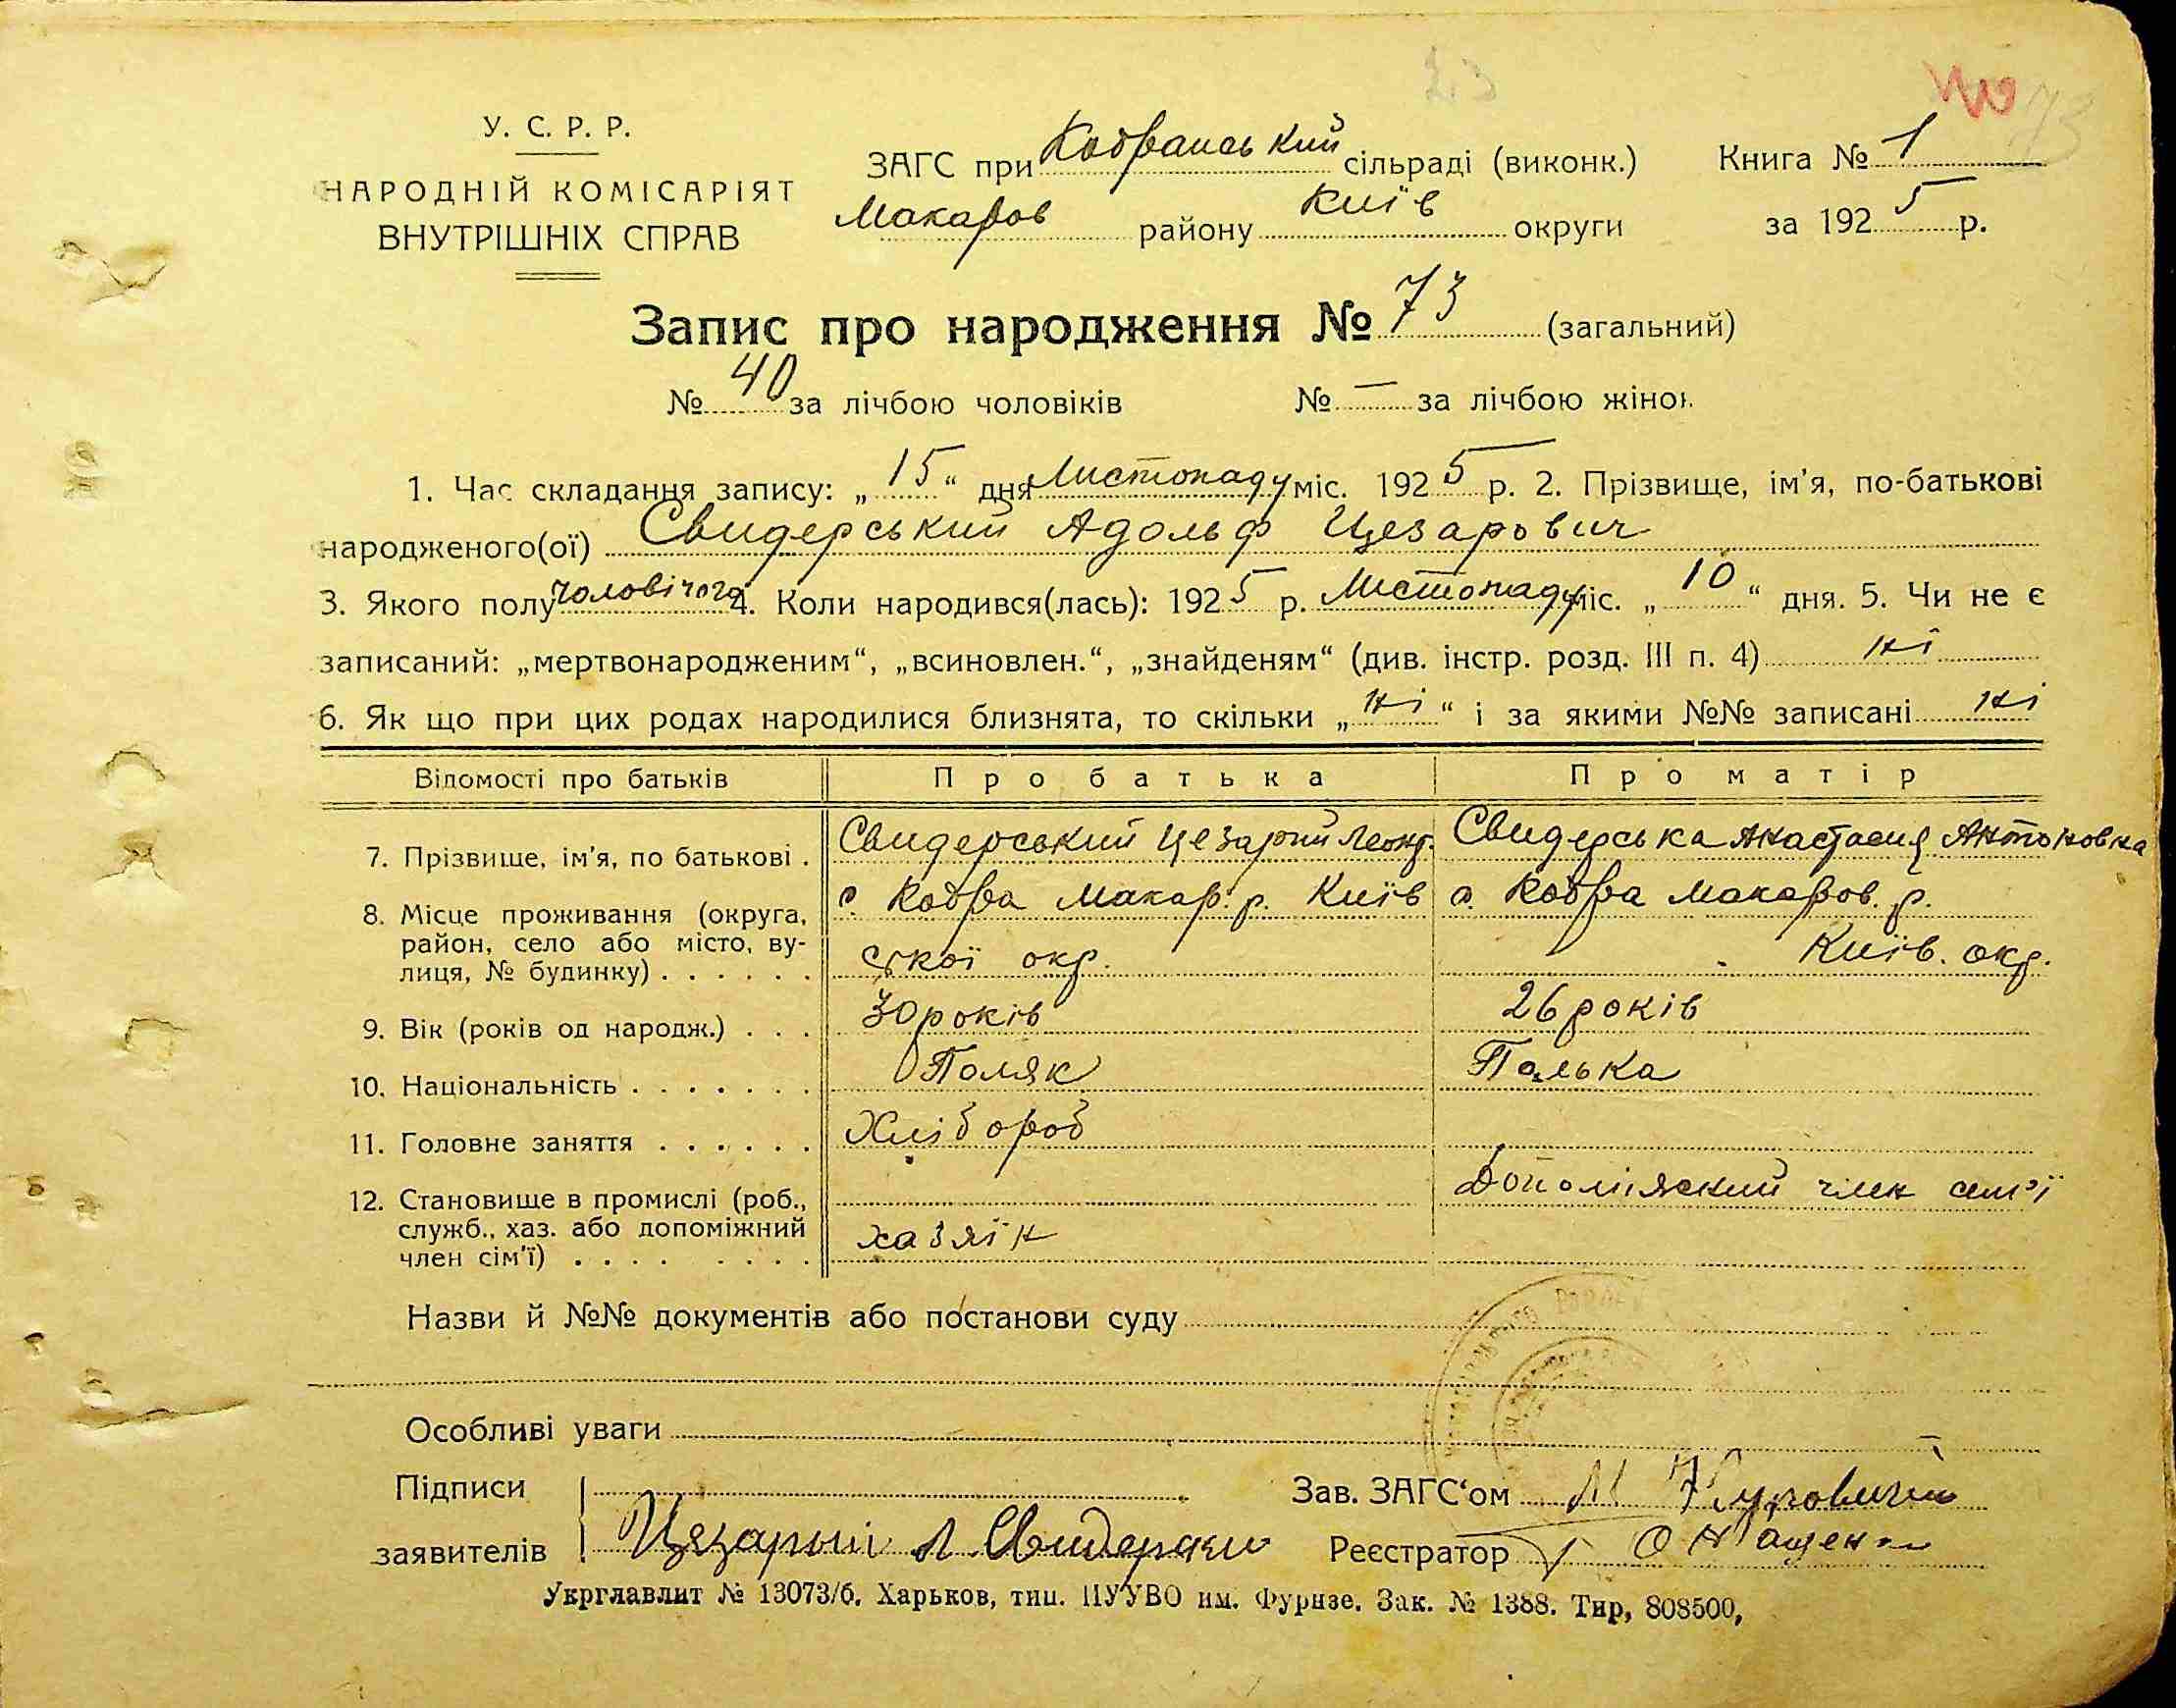 73
У. С. Р. Р.
НАРОДНІЙ КОМІСАРІЯТ
ВНУТРІШНІХ СПРАВ
ЗАГС при Кодранський сільраді (виконк.)
Макаров району Київ округи
Книга № 1
за 1925 р.
Запис про народження № 73 (загальний)
№ 40 за лічбою чоловіків № — за лічбою жінок
1. Час складання запису: „15“ дня Листопаду міс. 1925 р. 2. Прізвище, ім'я, по-батькові
народженого(ої) Свидерський Адольф Цезарович
3. Якого полу чоловічого 4. Коли народився(лась): 1925 р. Листопаду міс. „10“ дня. 5. Чи не є
записаний: „мертвонародженим“, „всиновлен.“, „знайденям“ (див. інстр. розд. III п. 4) ні
6. Як що при цих родах народилися близнята, то скільки „ні“ і за якими №№ записані ні
Відомості про батьків Про батька Про матір
7. Прізвище, ім'я, по батькові . Свидерський Цезарий Свидерська Анастасия Антоновна
8. Місце проживання (округа, с. Кодра Макар. р. Київ с. Кодра Макаров. р.
район, село або місто, ву- ської окр. Київ. окр.
лиця, № будинку) . . . . . .
9. Вік (років од народж.) . . . 30 років 26 років
10. Національність . . . . . . . Поляк Полька
11. Головне заняття . . . . . . Хлібороб
12. Становище в промислі (роб., Допоміжний член семʼї
служб., хаз. або допоміжний хазяїн
член сім'ї) . . . . . . . .
Назви й №№ документів або постанови суду
Особливі уваги
Підписи
заявителів Цезарий Л Свидерски
Зав. ЗАГС‘ом М
Реєстратор
Укрглавлит № 13073/б. Харьков, тип. ПУУВО им. Фурнзе. Зак. № 1388. Тир, 808500,